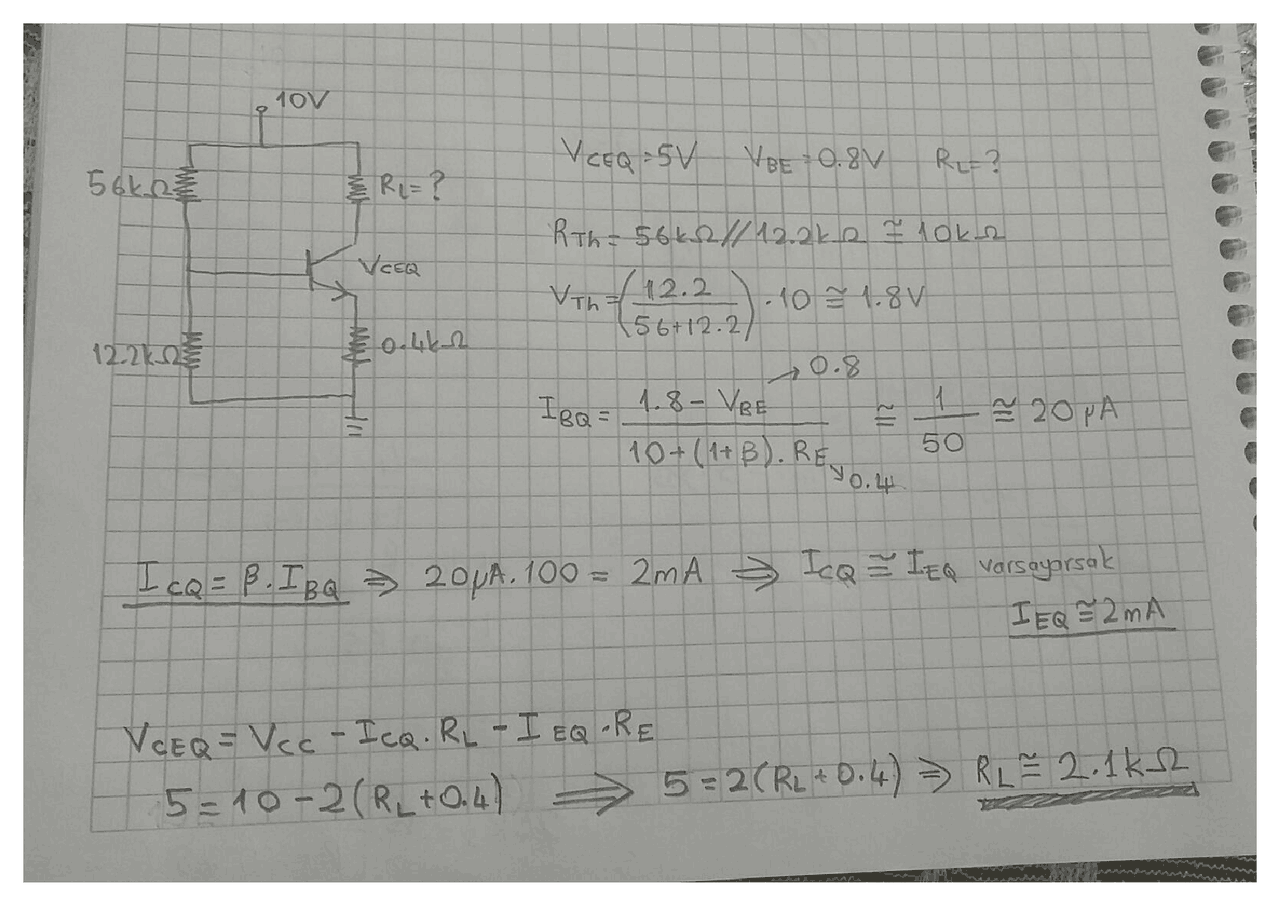 10V
56kΩ
RL=?
VCEQ
12.2kΩ
0.4kΩ
VCEQ=5V VBE=0.8V RL=?
RTh=56kΩ//12.2kΩ ≅ 10kΩ
VTh=(12.2/56+12.2).10 ≅ 1.8V
IBQ= 1.8-VBE→0.8/10+(1+β).RE→0.4 ≅ 1/50 ≅ 20μA
ICQ=β.IBQ ⇒ 20μA.100=2mA ⇒ ICQ≅IEQ varsayarsak
IEQ≅2mA
VCEQ=VCC-ICQ.RL-IEQ.RE
5=10-2(RL+0.4) ⇒ 5=2(RL+0.4) ⇒ RL≅2.1kΩ